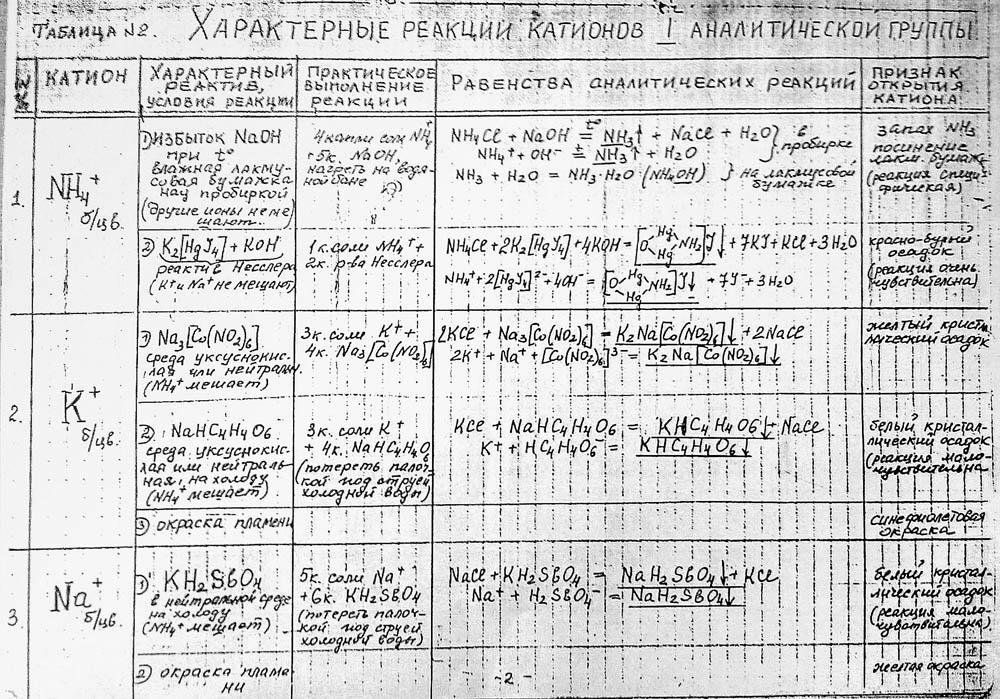 ТАБЛИЦА №2. ХАРАКТЕРНЫЕ РЕАКЦИИ КАТИОНОВ I АНАЛИТИЧЕСКОЙ ГРУППЫ
КАТИОН
ХАРАКТЕРНЫЙ
РЕАКТИВ,
УСЛОВИЯ РЕАКЦИИ
ПРАКТИЧЕСКОЕ
ВЫПОЛНЕНИЕ
РЕАКЦИИ
РАВЕНСТВА АНАЛИТИЧЕСКИХ РЕАКЦИЙ
ПРИЗНАК
ОТКРЫТИЯ
КАТИОНА
1.
NH₄⁺
б/цв.
1) ИЗБЫТОК NaOH
при t°
влажная лакму-
совая бумажка
над пробиркой
(другие ионы не ме
шают)
4 капли соли NH₄⁺
+5к. NaOH,
нагреть на водя-
ной бане
NH₄Cl + NaOH =t° NH₃↑ + NaCl + H₂O } в
NH₄⁺ + OH⁻ =t NH₃↑ + H₂O пробирке
NH₃ + H₂O = NH₃·H₂O (NH₄OH) } на лакмусовой
бумажке
запах NH₃
посинение
лакм. бумаж
(реакция специ
фическая)
2) K₂[HgJ₄] + KOH
реактив Несслера
(K⁺ и Na⁺ не мешают)
1к. соли NH₄⁺ +
2к. р-ва Несслера
NH₄Cl + 2K₂[HgJ₄] + 4KOH = [O Hg Hg NH₂]J↓ + 7KJ + KCl + 3H₂O
NH₄⁺ + 2[HgJ₄]²⁻ + 4OH⁻ = [O Hg Hg NH₂]J↓ + 7J⁻ + 3H₂O
красно-бурый
осадок
(реакция очень
чувствительна)
2.
K⁺
б/цв.
1) Na₃[Co(NO₂)₆]
среда уксуснокис-
лая или нейтральн.
(NH₄⁺ мешает)
3к. соли K⁺ +
4к. Na₃[Co(NO₂)₆]
2KCl + Na₃[Co(NO₂)₆] = K₂Na[Co(NO₂)₆]↓ + 2NaCl
2K⁺ + Na⁺ + [Co(NO₂)₆]³⁻ = K₂Na[Co(NO₂)₆]↓
желтый криста
ллический осадок
2) NaHC₄H₄O₆
среда уксуснокис-
лая или нейтраль-
ная, на холоду
(NH₄⁺ мешает)
3к. соли K⁺
+ 4к. NaHC₄H₄O₆
(потереть палоч-
кой под струей
холодной воды)
KCl + NaHC₄H₄O₆ = KHC₄H₄O₆↓ + NaCl
K⁺ + HC₄H₄O₆⁻ = KHC₄H₄O₆↓
белый кристал-
лический осадок
(реакция мало-
чувствительна
3) окраска пламени
синефиолетовая
окраска
3.
Na⁺
б/цв.
1) KH₂SbO₄
в нейтральной среде
на холоду
(NH₄⁺ мешает)
5к. соли Na⁺
+ 6к. KH₂SbO₄
(потереть палоч-
кой под струей
холодной воды)
NaCl + KH₂SbO₄ = NaH₂SbO₄↓ + KCl
Na⁺ + H₂SbO₄⁻ = NaH₂SbO₄↓
белый кристал-
лический осадок
(реакция мало-
чувствительна)
2) окраска пламе-
ни
желтая окраска
-2-